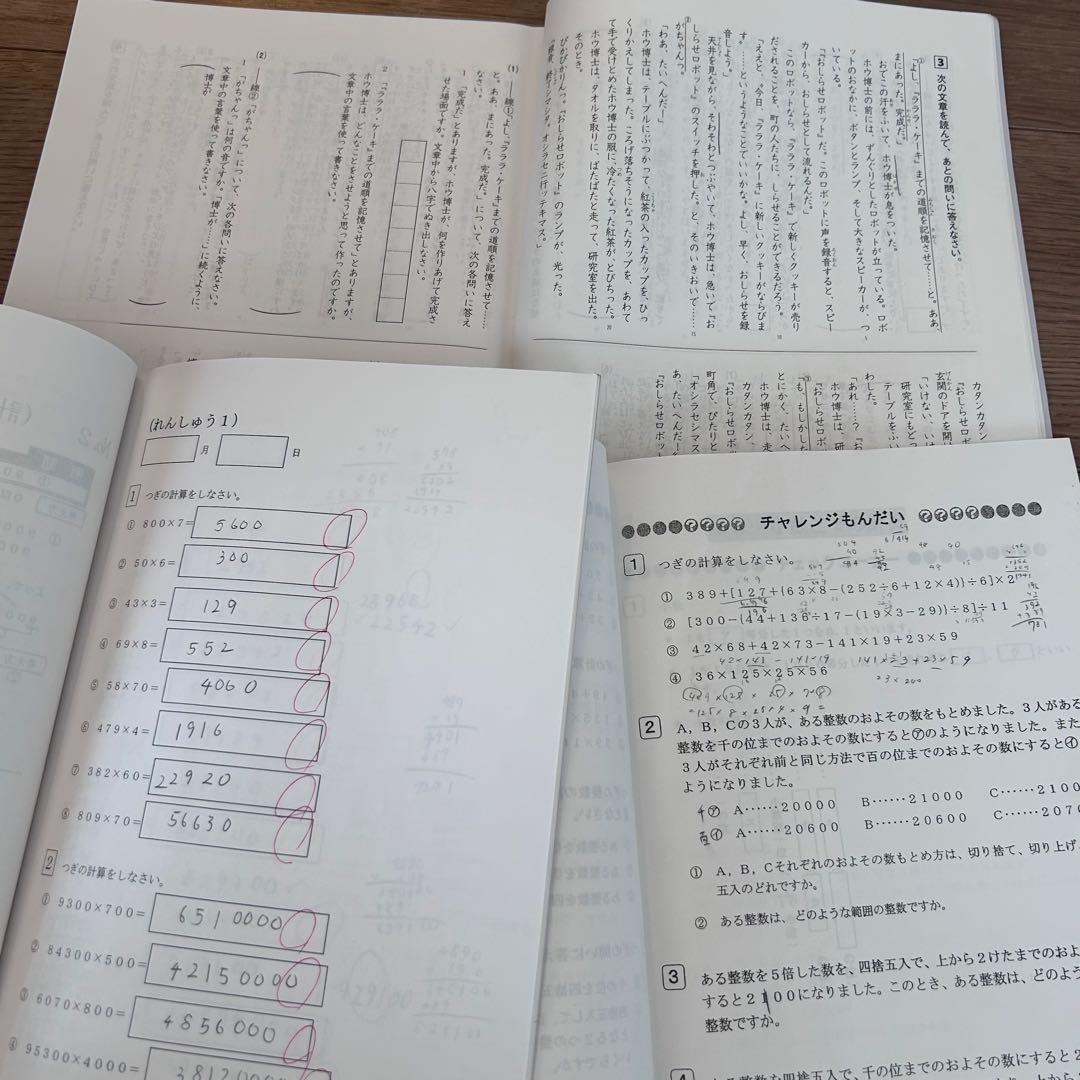 3 次の文章を読んで、あとの問いに答えなさい。
「よし。『ラララ・ケーキ』までの道順を記憶させて……と。ああ、
まにあった。完成だ。」
おでこの汗をふいて、ホウ博士が息をついた。
ホウ博士の前には、ずんぐりとしたロボットが立っている。ロボ
ットのおなかに、ボタンとランプ、そして大きなスピーカーが、つ
いている。
「おしらせロボット」だ。このロボットに声を録音すると、スピー
カーから、おしらせとして流れるんだ。
このロボットなら、「ラララ・ケーキ」で新しくクッキーが売り
だされることを、町の人たちに、しらせることができるだろう。
「ええと、今日、『ラララ・ケーキ』に新しいクッキーがならびま
す。……というようなことでいいかな。よし、早く、おしらせを録
音しよう。」
天井を見ながら、そわそわとつぶやいて、ホウ博士は、急いで『お
しらせロボット』のスイッチを押した。と、そのいきおいで……
②がちゃんっ。
「わあ、たいへんだ。」
ホウ博士は、テーブルにぶつかって、紅茶の入ったカップを、ひっ
くりかえしてしまった。ころげ落ちそうになったカップを、あわて
て手で受けとめたホウ博士の服に、冷たくなった紅茶が、とびちった。
ホウ博士は、タオルを取りに、ばたばたと走って、研究室を出た。
そのとき。
ぴかぴかりんっ。『おしらせロボット』のランプが、光った。
「録音、終了シマシタ。オシラセニ行ッテキマス。」
(1) ――線①「よし。『ラララ・ケーキ』までの道順を記憶させて……
と。ああ、まにあった。完成だ。」について、次の各問いに答え
なさい。
1 「完成だ」とありますが、ホウ博士が、何を作りあげて完成さ
せた場面ですか。文章中から八字でぬき出しなさい。
2 「『ラララ・ケーキ』までの道順を記憶させて」とありますが、
ホウ博士は、どんなことをさせようと思って作ったのですか。
文章中の言葉を使って書きなさい。
(2) ――線②「がちゃんっ」について、次の各問いに答えなさい。
1 「がちゃんっ」は何の音ですか。「博士が……」に続くように、
文章中の言葉を使って書きなさい。
博士が
カタンカタン
『おしらせロボ
玄関のドアを開け
「いけない、いけ
研究室にもど
テーブルをふい
わした。
「あれ……？
ホウ博士は、
③「も、もしかした
とにかく、たいへ
ホウ博士は、走
カタンカタン、
『おしらせロボ
町角で、ぴたりと
「オシラセシマス
あ、たいへんだ！
『おしらせロボッ
(れんしゅう1)
月 日
1 つぎの計算をしなさい。
① 800×7= 5600
② 50×6= 300
③ 43×3= 129
④ 69×8= 552
⑤ 58×70= 4060
⑥ 479×4= 1916
⑦ 382×60= 22920
⑧ 809×70= 56630
2 つぎの計算をしなさい。
① 9300×700= 6510000
② 84300×500= 42150000
③ 6070×800= 4856000
④ 95300×4000= 3812000
チャレンジもんだい
1 つぎの計算をしなさい。
① 389+[127+{63×8−(252÷6+12×4)}÷6]×2
② [300−{44+136÷17−(19×3−29)}÷8]÷11
③ 42×68+42×73−141×19+23×59
42×141 − 141×19
141×23+23×59
23×200
④ 36×125×25×56
=125×8×25×4×9=
2 A，B，Cの3人が、ある整数のおよその数をもとめました。3人がある
整数を千の位までのおよその数にすると㋐のようになりました。また
3人がそれぞれ前と同じ方法で百の位までのおよその数にすると㋑
ようになりました。
千 ㋐ A……20000 B……21000 C……2100
百 ㋑ A……20600 B……20600 C……2070
① A，B，Cそれぞれのおよその数もとめ方は、切り捨て、切り上げ
五入のどれですか。
② ある整数は、どのような範囲の整数ですか。
3 ある整数を5倍した数を、四捨五入で、上から2けたまでのおよ
すると2100になりました。このとき、ある整数は、どのよう
整数ですか。
4 ある整数を四捨五入で、千の位までのおよその数にすると2